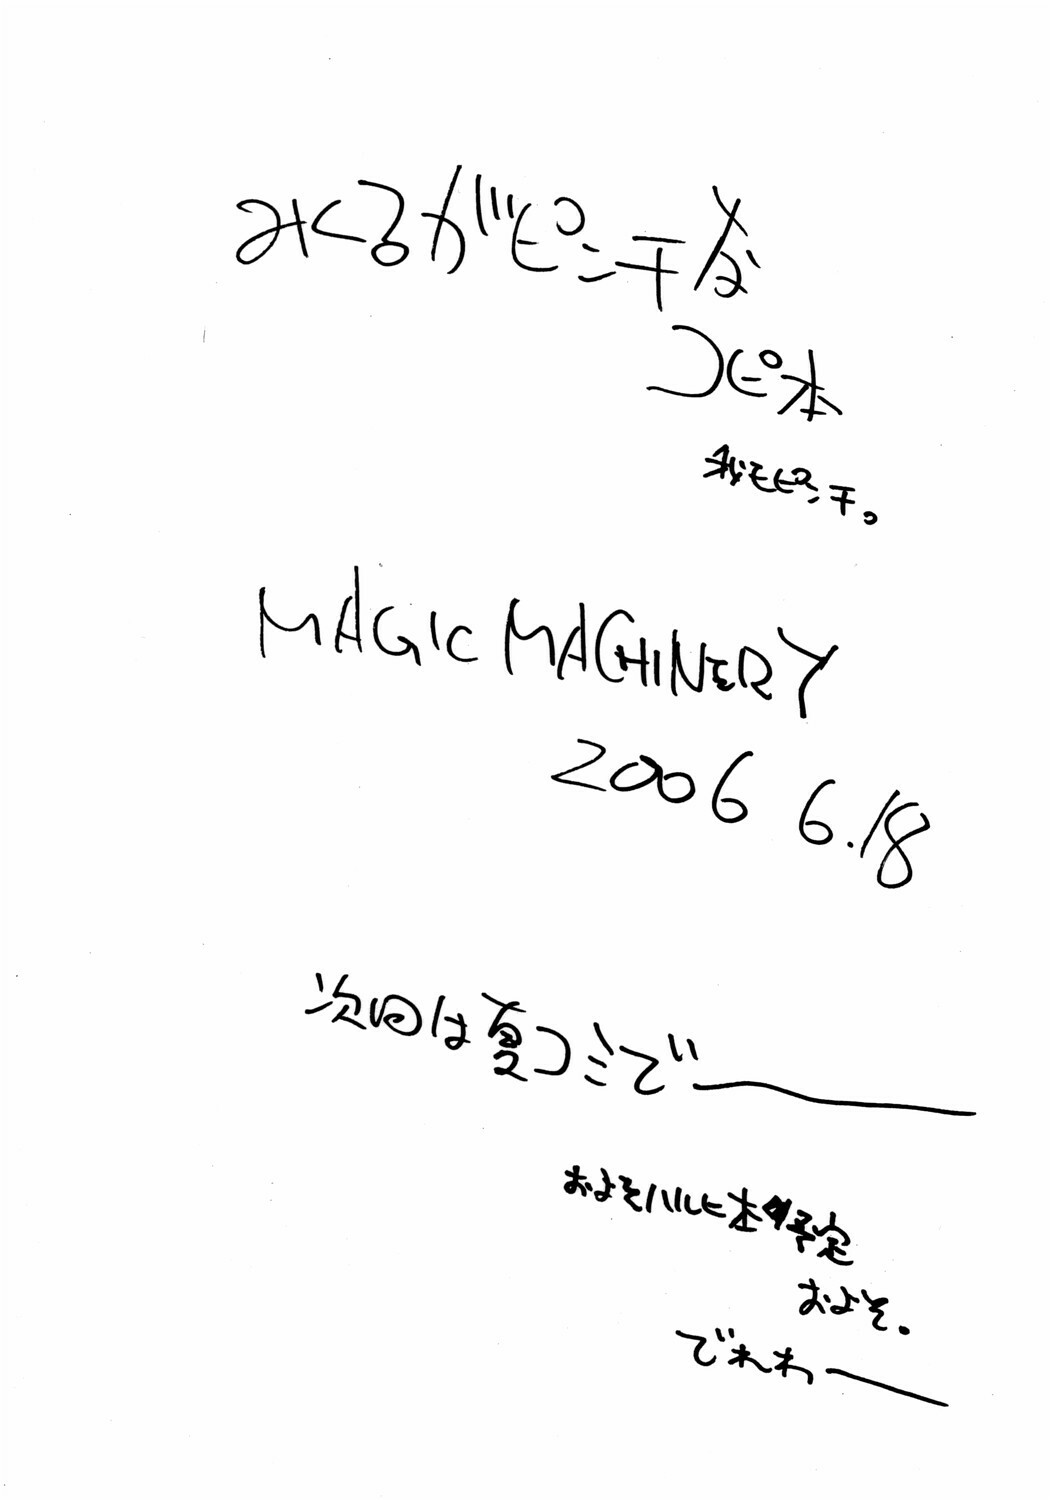 みくるがピンチな
コピ本
我もピンチ。
MAGIC MACHINERY
2006 6.18
次回は夏コミで――
およそハルヒ本予定
およそ。
でわわ―